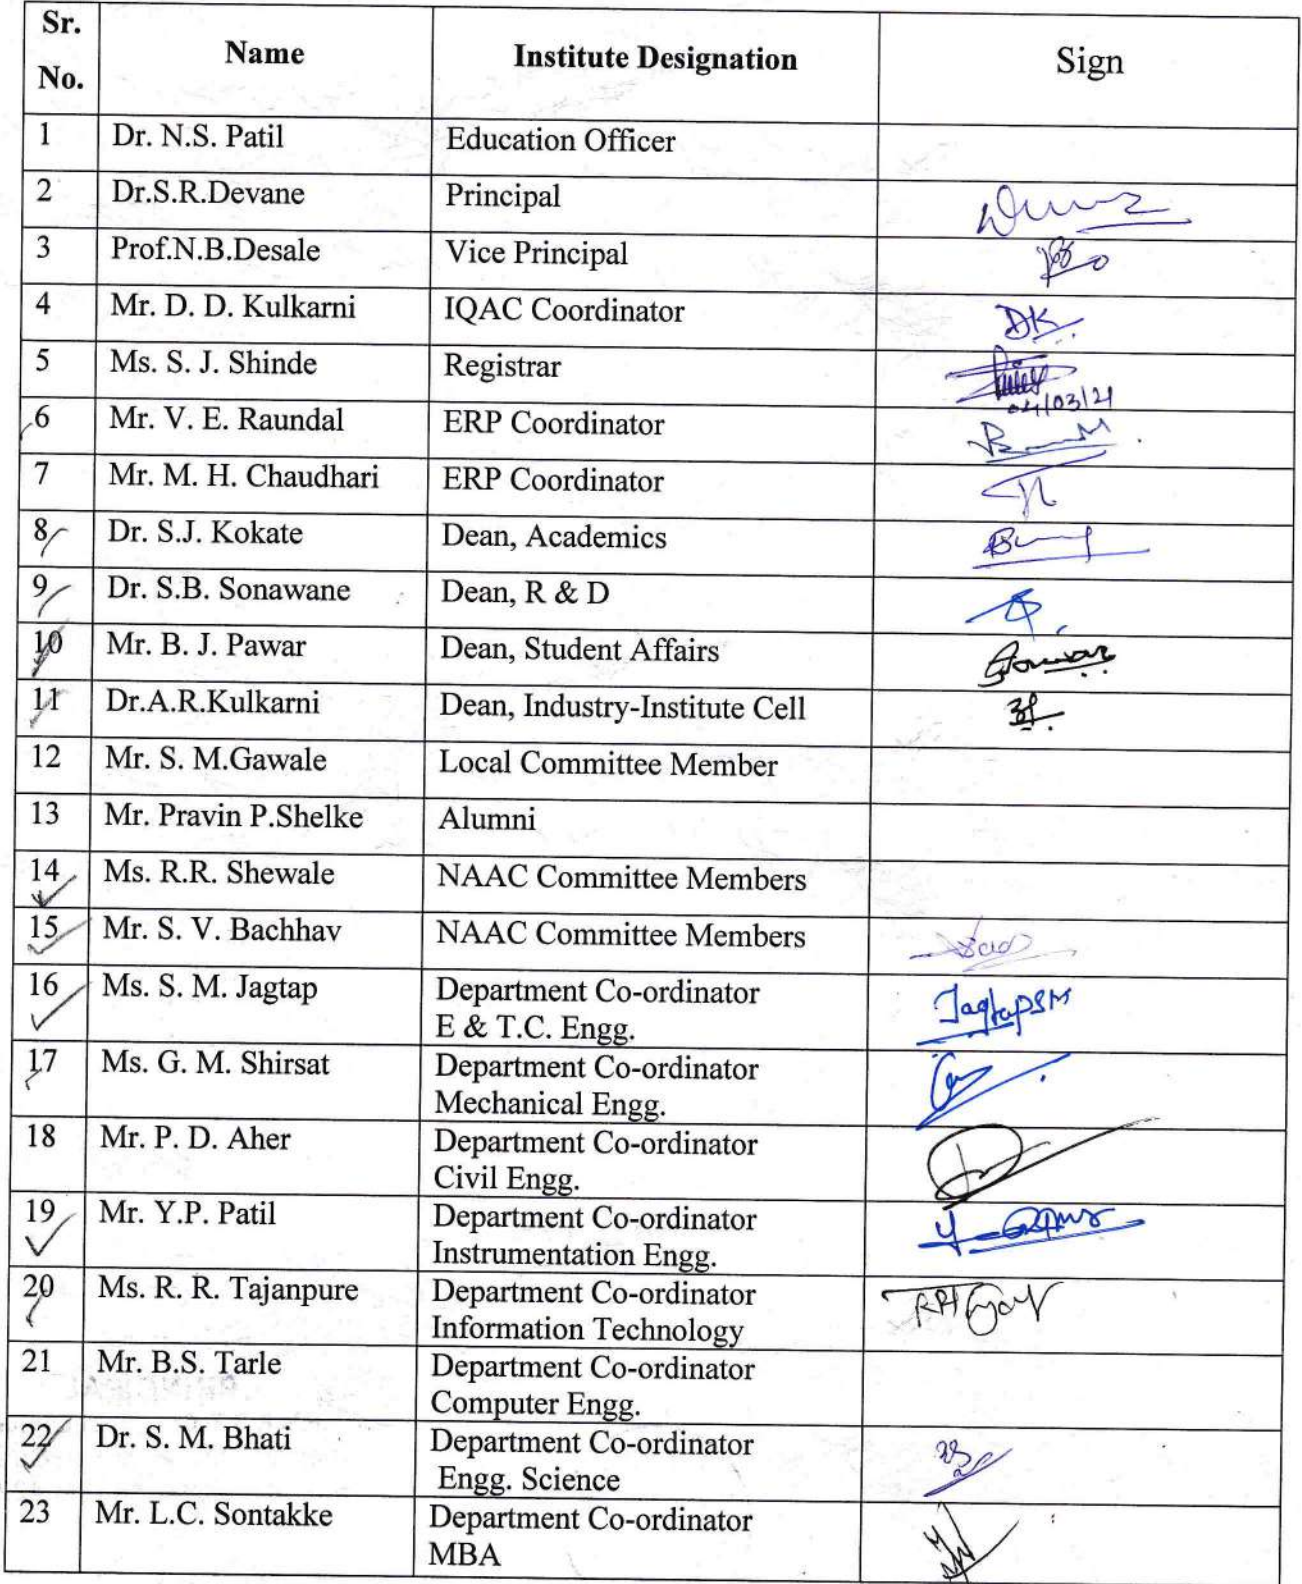 Sr. No. Name Institute Designation Sign
1 Dr. N.S. Patil Education Officer
2 Dr.S.R.Devane Principal
3 Prof.N.B.Desale Vice Principal
4 Mr. D. D. Kulkarni IQAC Coordinator DK
5 Ms. S. J. Shinde Registrar
04/03/21
6 Mr. V. E. Raundal ERP Coordinator
7 Mr. M. H. Chaudhari ERP Coordinator
8 Dr. S.J. Kokate Dean, Academics
9 Dr. S.B. Sonawane Dean, R & D
10 Mr. B. J. Pawar Dean, Student Affairs
11 Dr.A.R.Kulkarni Dean, Industry-Institute Cell
12 Mr. S. M.Gawale Local Committee Member
13 Mr. Pravin P.Shelke Alumni
14 Ms. R.R. Shewale NAAC Committee Members
15 Mr. S. V. Bachhav NAAC Committee Members
16 Ms. S. M. Jagtap Department Co-ordinator JagtapSM
E & T.C. Engg.
17 Ms. G. M. Shirsat Department Co-ordinator
Mechanical Engg.
18 Mr. P. D. Aher Department Co-ordinator
Civil Engg.
19 Mr. Y.P. Patil Department Co-ordinator
Instrumentation Engg.
20 Ms. R. R. Tajanpure Department Co-ordinator
Information Technology
21 Mr. B.S. Tarle Department Co-ordinator
Computer Engg.
22 Dr. S. M. Bhati Department Co-ordinator
Engg. Science
23 Mr. L.C. Sontakke Department Co-ordinator
MBA